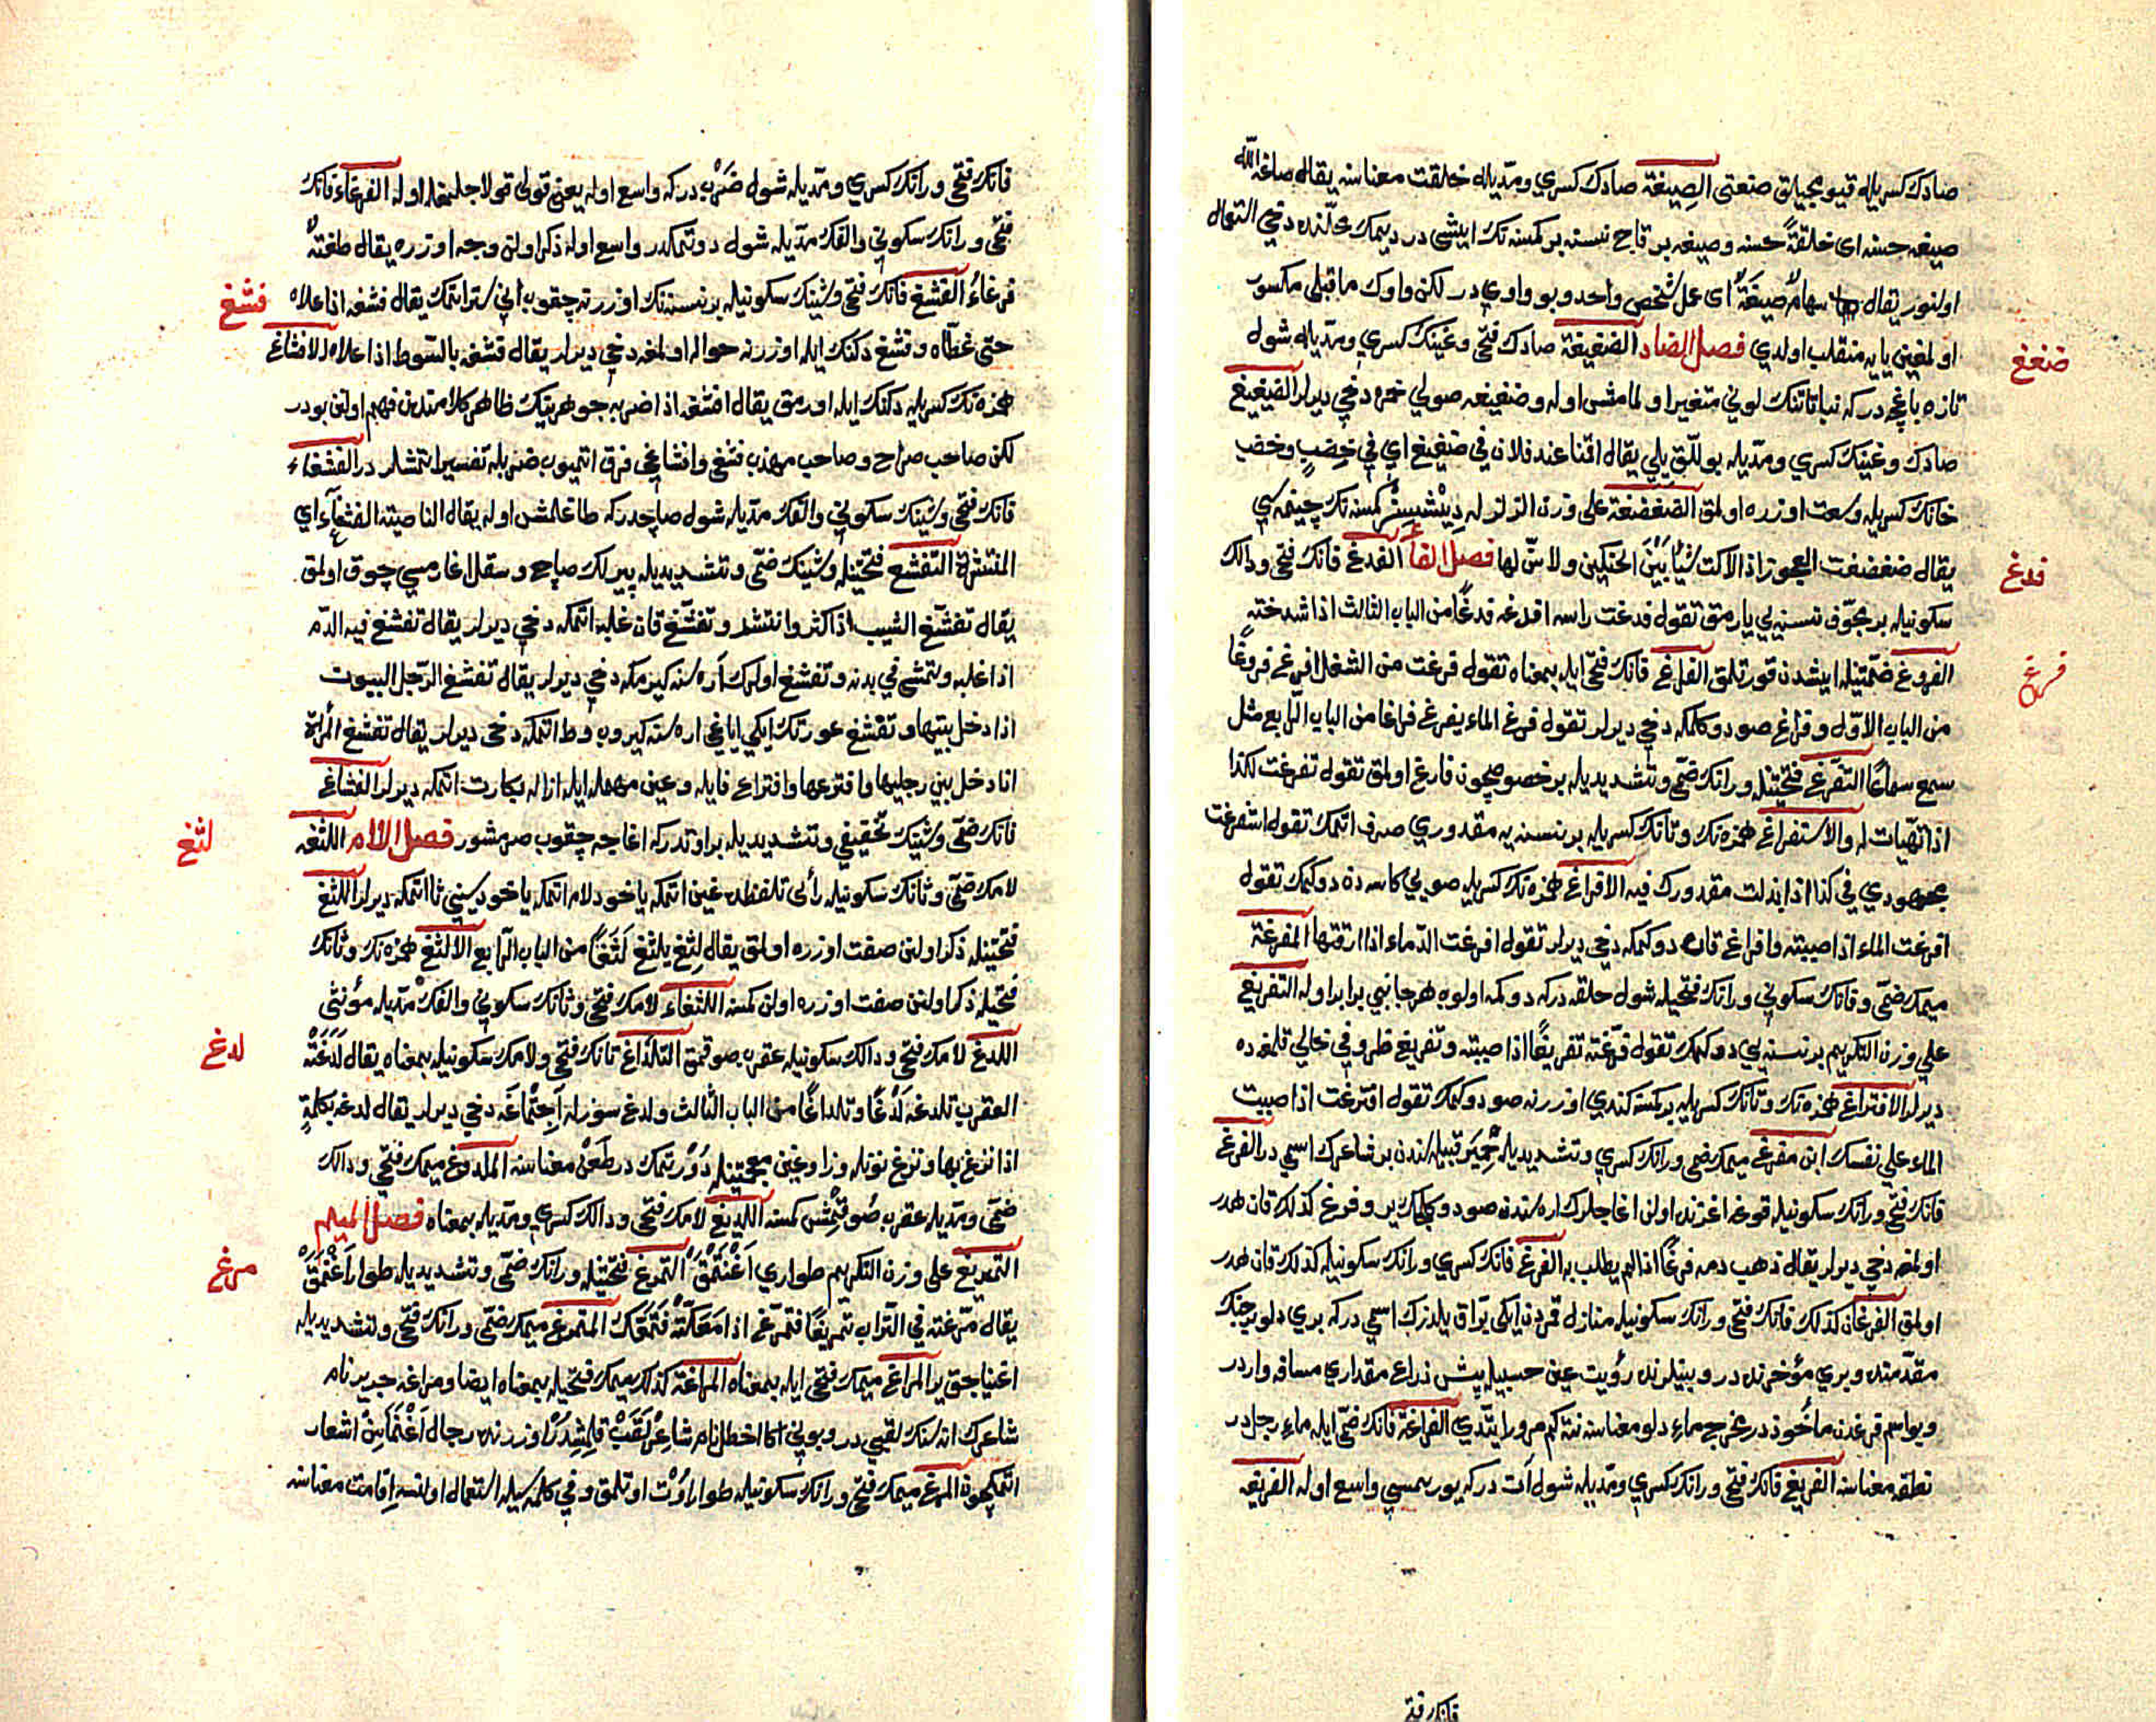 صادك كسريله قيومجيلق صنعتى الصيغة صادك كسري ومديله خلقت معناسنه يقال صاغه الله
صيغه حسنه اى خلقة حسنه وصيغه بر قاح نسنه بر كمسنه نك ايشى در ديمك محلنده دخي استعمال
اولنور يقال سهام صيغة اى عمل شخص واحد وبو واوي در لكن واوك ماقبلى مكسور
اولمغين يايه منقلب اولدي فصل الضاد الضغيغة صادك فتحى وغينك كسري ومديله شول
ضغغ
تازه باغچه در كه نباتاتنك لوني متغير اولمامش اوله وضغيغه صولي خمره دخي ديرلر الضغيغ
صادك وغينك كسري ومديله بوللق يلي يقال اقنا عند فلان في ضغيغ اي في خصب وخصب
خانك كسريله وسعت اوزره اولمق الضغضغة على وزن الزلزله ديشسز كمسنه نك چينمه سي
يقال ضغضغت العجوز اذا لاكت شيأ بين الحنكين ولا سن لها فصل الفاء الفدغ فانك فتحى ودالك
فدغ
سكونيله بر مجوف نسنه يي يارمق تقول فدغت راسه افدغه فدغا من الباب الثالث اذا شدخته
الفروغ ضمتيله ايشدن قورتلمق الفراغ فانك فتحى ايله بمعناه تقول فرغت من الشغل افرغ فروغا
فرغ
من الباب الاول وفراغ صو دوكلمكه دخي ديرلر تقول فرغ الماء يفرغ فراغا من الباب الرابع مثل
سمع سماعا التفرغ فتحتيله ورانك ضمى وتشديديله بر خصوصيچون فارغ اولمق تقول تفرغت لكذا
اذا تهيات له والاستفراغ همزه نك وتانك كسريله بر نسنه يه مقدوري صرف اتمك تقول استفرغت
مجهودي في كذا اذا بذلت مقدورك فيه الافراغ همزه نك كسريله صويي كاسه ده دوكمك تقول
افرغت الماء اذا صببته وافراغ قان دوكمكه دخي ديرلر تقول افرغت الدماء اذا ارقتها المفرغة
ميمك ضمى وفانك سكوني ورانك فتحيله شول حلقه در كه دوكمه اولوب هر جانبي برابر اوله التفريغ
على وزن التكريم بر نسنه يي دوكمك تقول فرغته تفريغا اذا صببته وتفريغ ظروفي خالي قلمغه ده
ديرلر الافتراغ همزه نك وتانك كسريله بر كمسنه كندي اوزرينه صو دوكمك تقول افترغت اذا صببت
الماء على نفسك ابن مفرغ ميمك ضمى ورانك كسري وتشديديله حمير قبيله سندن بر شاعرك اسمي در الفرغ
فانك فتحى ورانك سكونيله قوغه اغزنده اولن اغاجلرك اره سندن صو دوكلمك ير وفرغ كذلك قان هدر
اولمغه دخي ديرلر يقال ذهب دمه فرغا اذا لم يطلب به الفرغ فانك كسري ورانك سكونيله كذلك قان هدر
اولمق الفرغان كذلك فانك فتحى ورانك سكونيله منازل قمردن ايكي يراق يلدزك اسمي در كه بري دلو برجنك
مقدمنده وبري مؤخرنده در وبينلرنده رؤيت عين حسبيله بش ذراع مقداري مسافه واردر
وبو اسم فرغدن مأخوذدر مخرج ماء دلو معناسنه نته كم مرور ايتدي الفراغة فانك ضمى ايله ماء رجل در
نطفه معناسنه الفريغ فانك فتحى ورانك كسري ومديله شول آت در كه يوريمسي واسع اوله الفريغه
فانك فتحى
فانك فتحى ورانك كسري ومديله شول ضرب در كه واسع اوله يعني قولي قولاجلمغله اوله الفرغاء فانك
فتحى ورانك سكوني والفك مديله شول دوتمكدر واسع اوله ذكر اولنن وجه اوزره يقال طغنة
فرغاء الفشغ فانك فتحى وشينك سكونيله بر نسنه نك اوزرينه چقوب اني ستر اتمك يقال فشغه اذا علاه
فشغ
حتى غطاه وفشغ دكنك ايله اوزرينه حواله اولمغه دخي ديرلر يقال فشغه بالسوط اذا علاه الافشاغ
همزه نك كسريله دكنك ايله اورمق يقال افشغه اذا ضربه جوهرينك ظاهر كلامندن فهم اولنن بودر
لكن صاحب صراح وصاحب مهذب فشغ وافشاغي فرق اتميوب ضربله تفسير اتمشلر در الفشغاء
فانك فتحى وشينك سكوني والفك مديله شول صاچدر كه طاغلمش اوله يقال الناصية الفشغاء اي
المنتشرة التفشغ فتحتيله وشينك ضمى وتشديديله پيرلك صاچ وسقال اغارمسي چوق اولمق
يقال تفشغ الشيب اذا كثر وانتشر وتفشغ قان غلبه اتمكه دخي ديرلر يقال تفشغ فيه الدم
اذا غلبه وتمشى في بدنه وتفشغ اولرك اره سنه كيرمكه دخي ديرلر يقال تفشغ الرجل البيوت
اذا دخل بينها وتفشغ عورتك ايكي اياغي اره سنه كيروب وطء اتمكه دخي ديرلر يقال تفشغ المرأة
اذا دخل بين رجليها وافترعها وافتراع فايله وعين مهمله ايله ازاله بكارت اتمكه ديرلر الفشاغ
فانك ضمى وشينك تخفيفي وتشديديله بر اوتدر كه اغاجه چقوب صرمشور فصل اللام اللثغه
لثغ
لامك ضمى وثانك سكونيله رأيي تلفظده غين اتمكه ياخود لام اتمكه ياخود سيني ثا اتمكه ديرلر اللثغ
فتحتيله ذكر اولنن صفت اوزره اولمق يقال لثغ يلثغ لثغا من الباب الرابع الالثغ همزه نك وثانك
فتحيله ذكر اولنن صفت اوزره اولن كمسنه اللثغاء لامك فتحى وثانك سكوني والفك مديله مؤنثى
اللدغ لامك فتحى ودالك سكونيله عقرب صوقمق التلداغ تانك فتحى ولامك سكونيله بمعناه يقال لدغته
لدغ
العقرب تلدغه لدغا وتلداغا من الباب الثالث ولدغ سوزله اجتماغه دخي ديرلر يقال لدغه بكلمة
اذا نزغ بها ونزغ نونله وزا وغين معجمتيله دورتمك در طعن معناسنه الملدوغ ميمك فتحى ودالك
ضمى ومديله عقرب صوقمش كمسنه اللديغ لامك فتحى ودالك كسري ومديله بمعناه فصل الميم
التمريغ على وزن التكريم طواري اغنتمق التمرغ فتحتيله ورانك ضمى وتشديديله طوار اغنمق
مرغ
يقال مرغته في التراب تمريغا فتمرغ اذا معكته فتمعك المتمرغ ميمك ضمى ورانك فتحى وتشديديله
اغنياجق ير المراغ ميمك فتحى ايله بمعناه المراغة كذلك ميمك فتحيله بمعناه ايضا ومراغه جرير نام
شاعرك اناسنك لقبي در وبوني اكا اخطل نام شاعر لقب قلمشدر اوزرنده رجال اغنماسن اشعار
اتمكچون المرغ ميمك فتحى ورانك سكونيله طوار اوت اوتلمق وفي كلمه سيله استعمال اولنسه اقامت معناسنه